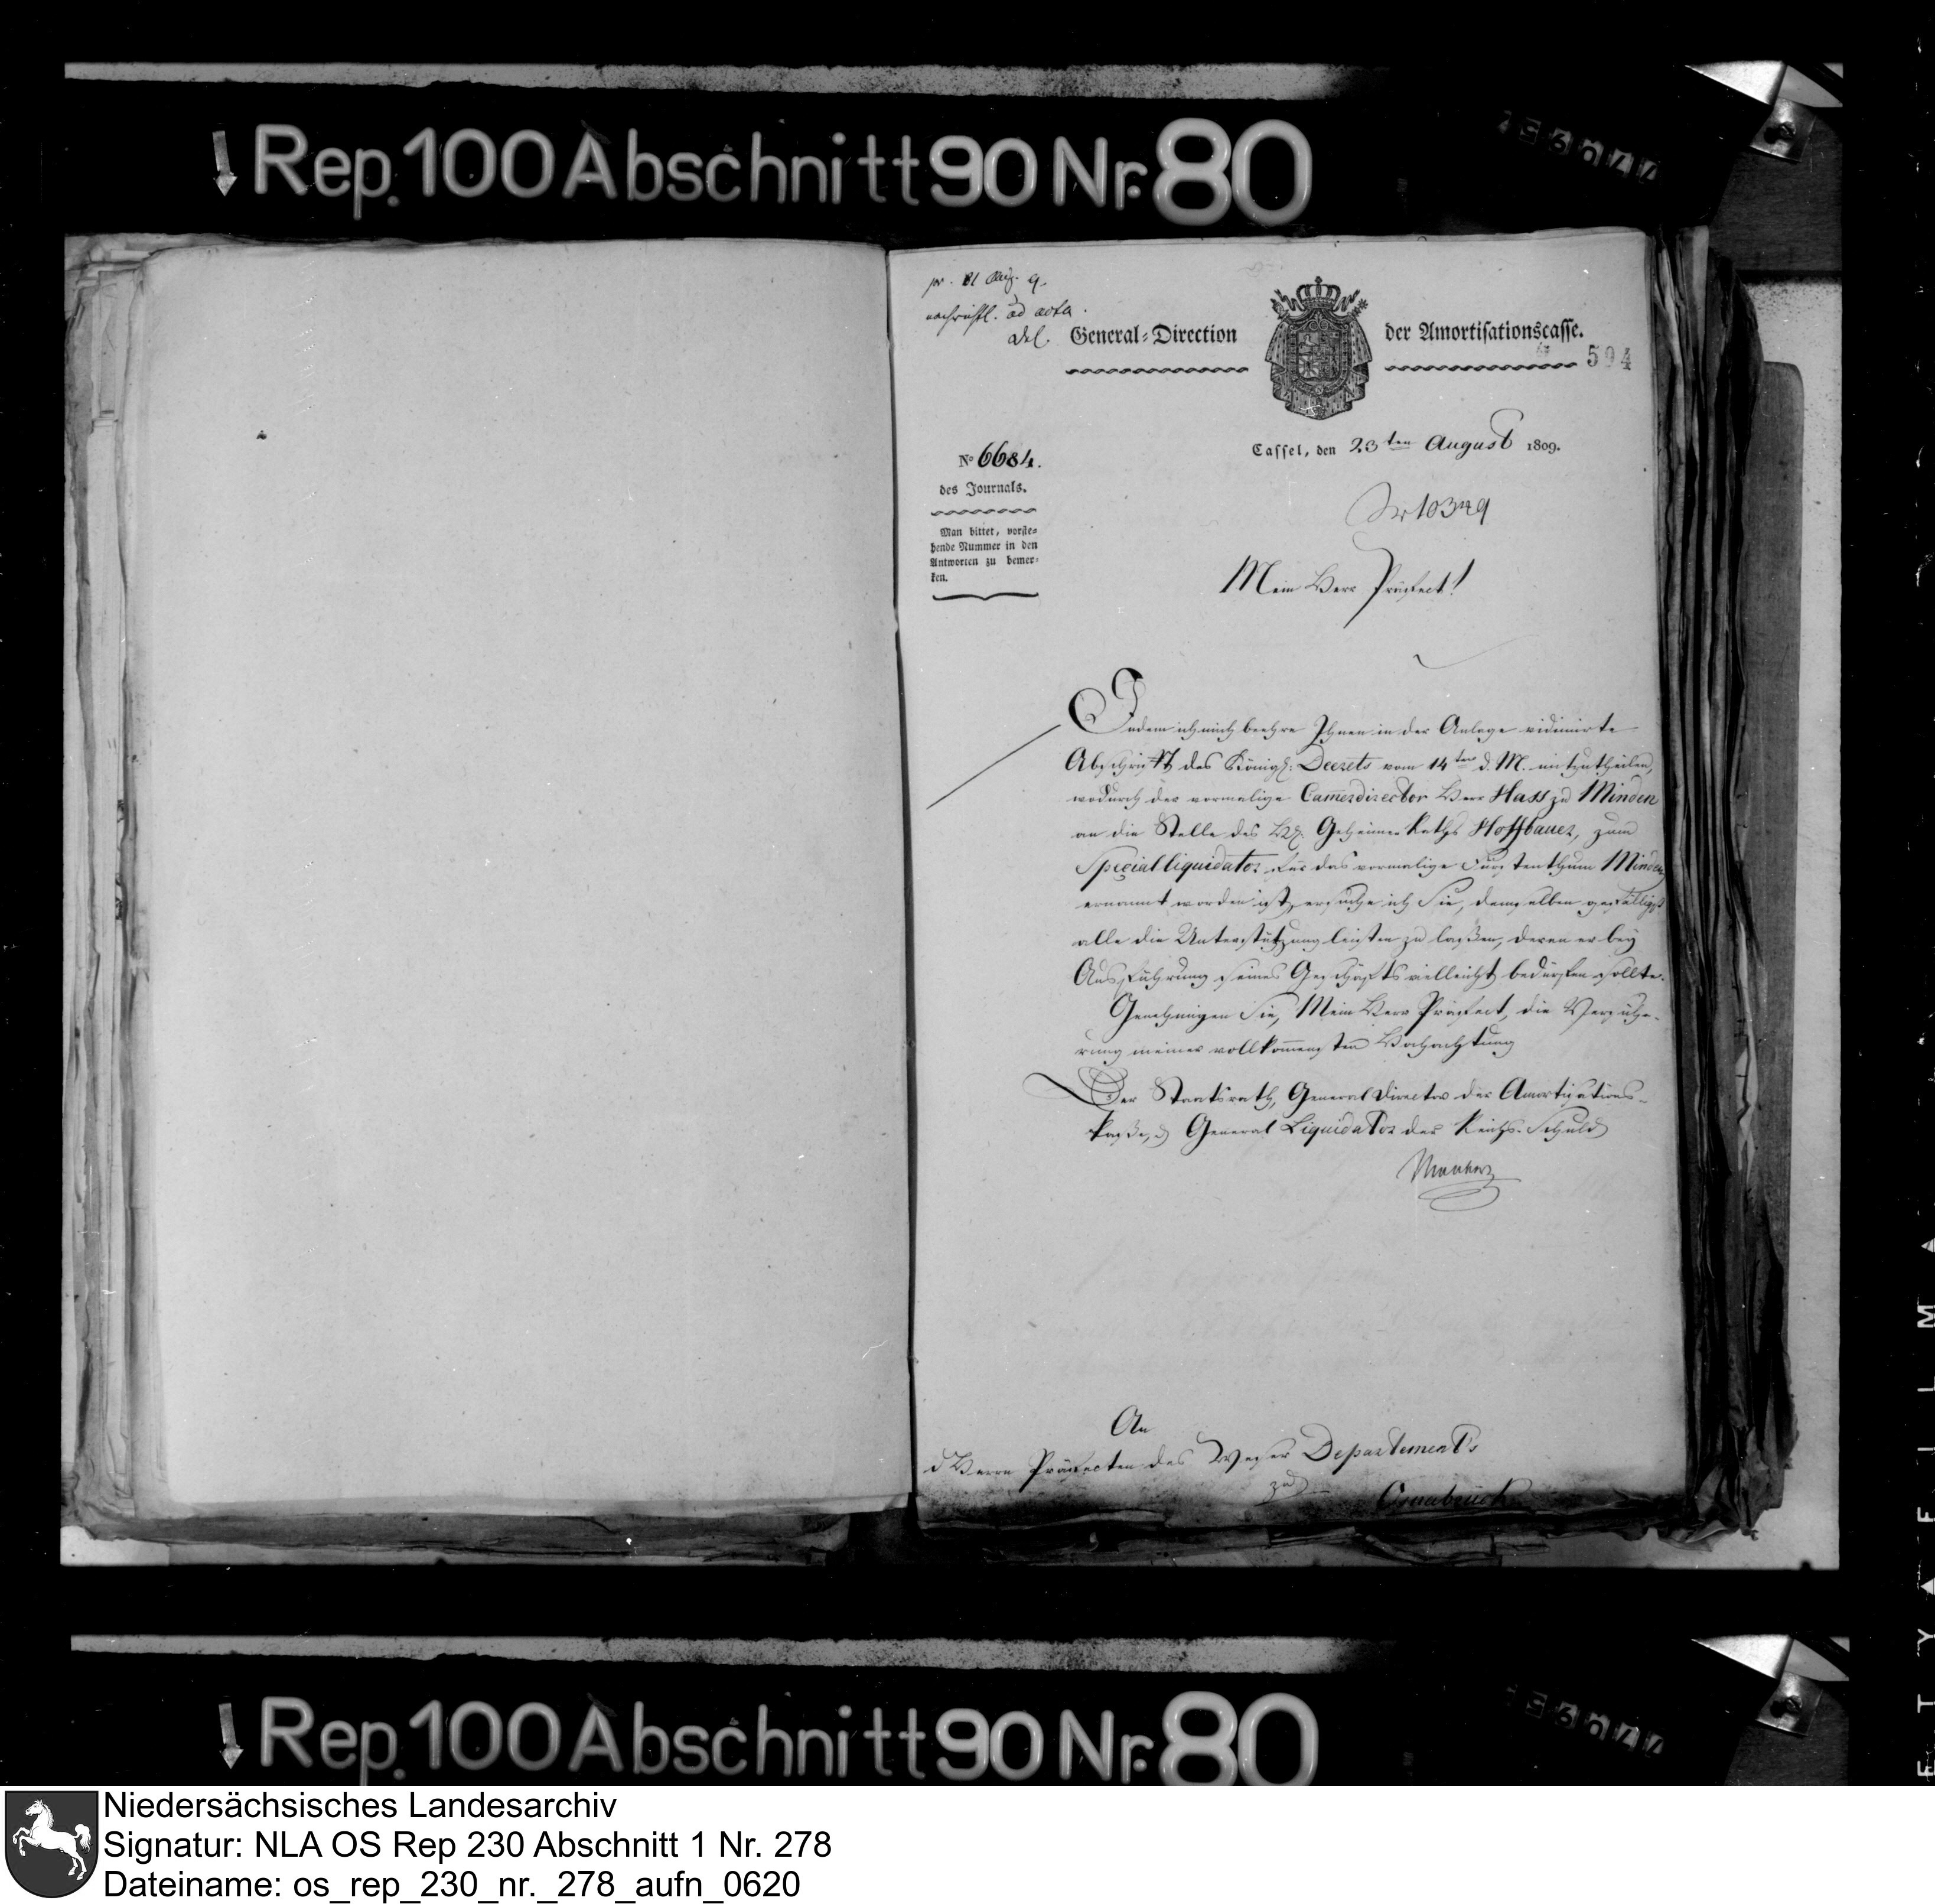 Rep. 100 Abschnitt 90 Nr. 80
pr. 31 Aug. 9.
nachrichtl. ad acta.
General-Direction der Amortisationscasse.
594
Cassel, den 23ten August 1809.
No 6684.
des Journals.
Man bittet, vorste-
hende Nummer in den
Antworten zu bemer-
ken.
Mein Herr Präfect!
Indem ich mich beehre Ihnen in der Anlage vidimirte
Abschrift des Königl: Decrets vom 14ten d. M. mitzutheilen,
wodurch der vormalige Camerdirector Herr Hass zu Minden
an die Stelle des H. Geheimen Raths Hoffbauer, zum
Specialliquidator für das vormalige Fürstenthum Minden
ernannt worden ist, ersuche ich Sie, demselben gefälligst
alle die Unterstützung leisten zu laßen, deren er bey
Ausführung seines Geschäfts vielleicht bedürfen sollte.
Genehmigen Sie, Mein Herr Präfect, die Versiche-
rung meiner vollkommensten Hochachtung
Der Staatsrath, General Director der Amortisations-
kaße, General Liquidator der Reichs-Schuld
An
d Herrn Präfecten des Weser Departements
zu Osnabrück
Rep. 100 Abschnitt 90 Nr. 80
Niedersächsisches Landesarchiv
Signatur: NLA OS Rep 230 Abschnitt 1 Nr. 278
Dateiname: os_rep_230_nr._278_aufn_0620